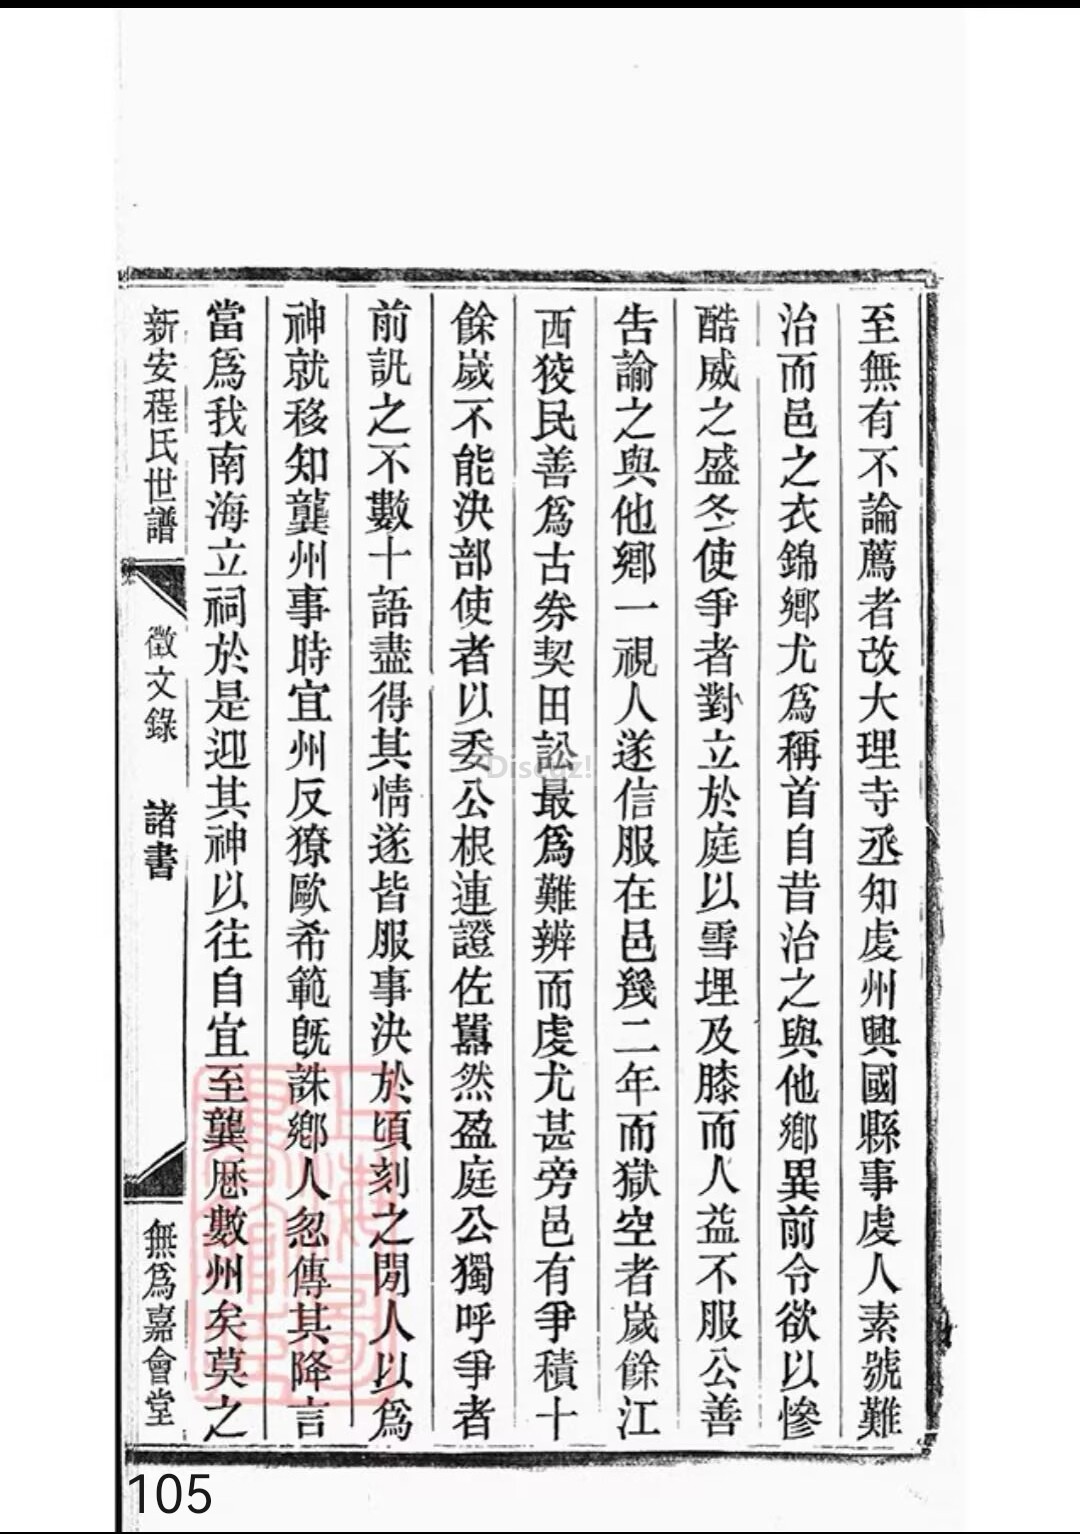 至無有不論薦者改大理寺丞知䖏州興國縣事䖏人素號難
治而邑之衣錦鄉尤爲稱首自昔治之與他鄉異前令欲以慘
酷威之盛冬使爭者對立於庭以雪埋及膝而人益不服公善
告諭之與他鄉一視人遂信服在邑幾二年而獄空者嵗餘江
西狡民善爲古券契田訟最爲難辨而䖏尤甚旁邑有爭積十
餘嵗不能決部使者以委公根連證佐囂然盈庭公獨呼爭者
前訊之不數十語盡得其情遂皆服事決於頃刻之閒人以爲
神就移知龔州事時宜州反獠歐希範旣誅鄉人忽傳其降言
當爲我南海立祠於是迎其神以往自宜至龔歷數州矣莫之
新安程氏世譜 徵文錄 諸書 無爲嘉會堂
Discuz!
105